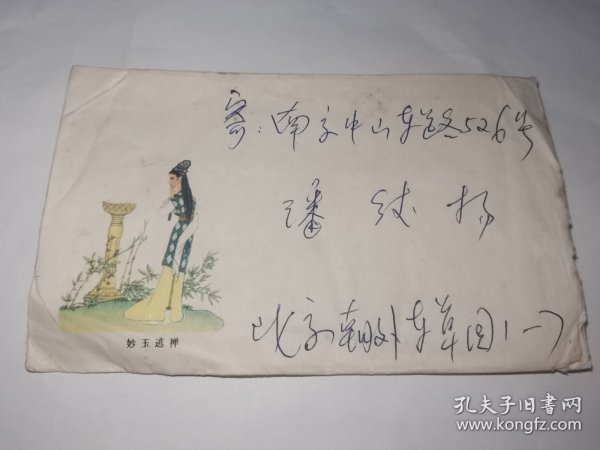 寄：南京中山东路526号
潘
北京朝外东草园1-7
妙玉逃禅
孔夫子旧书网
www.kongfz.com